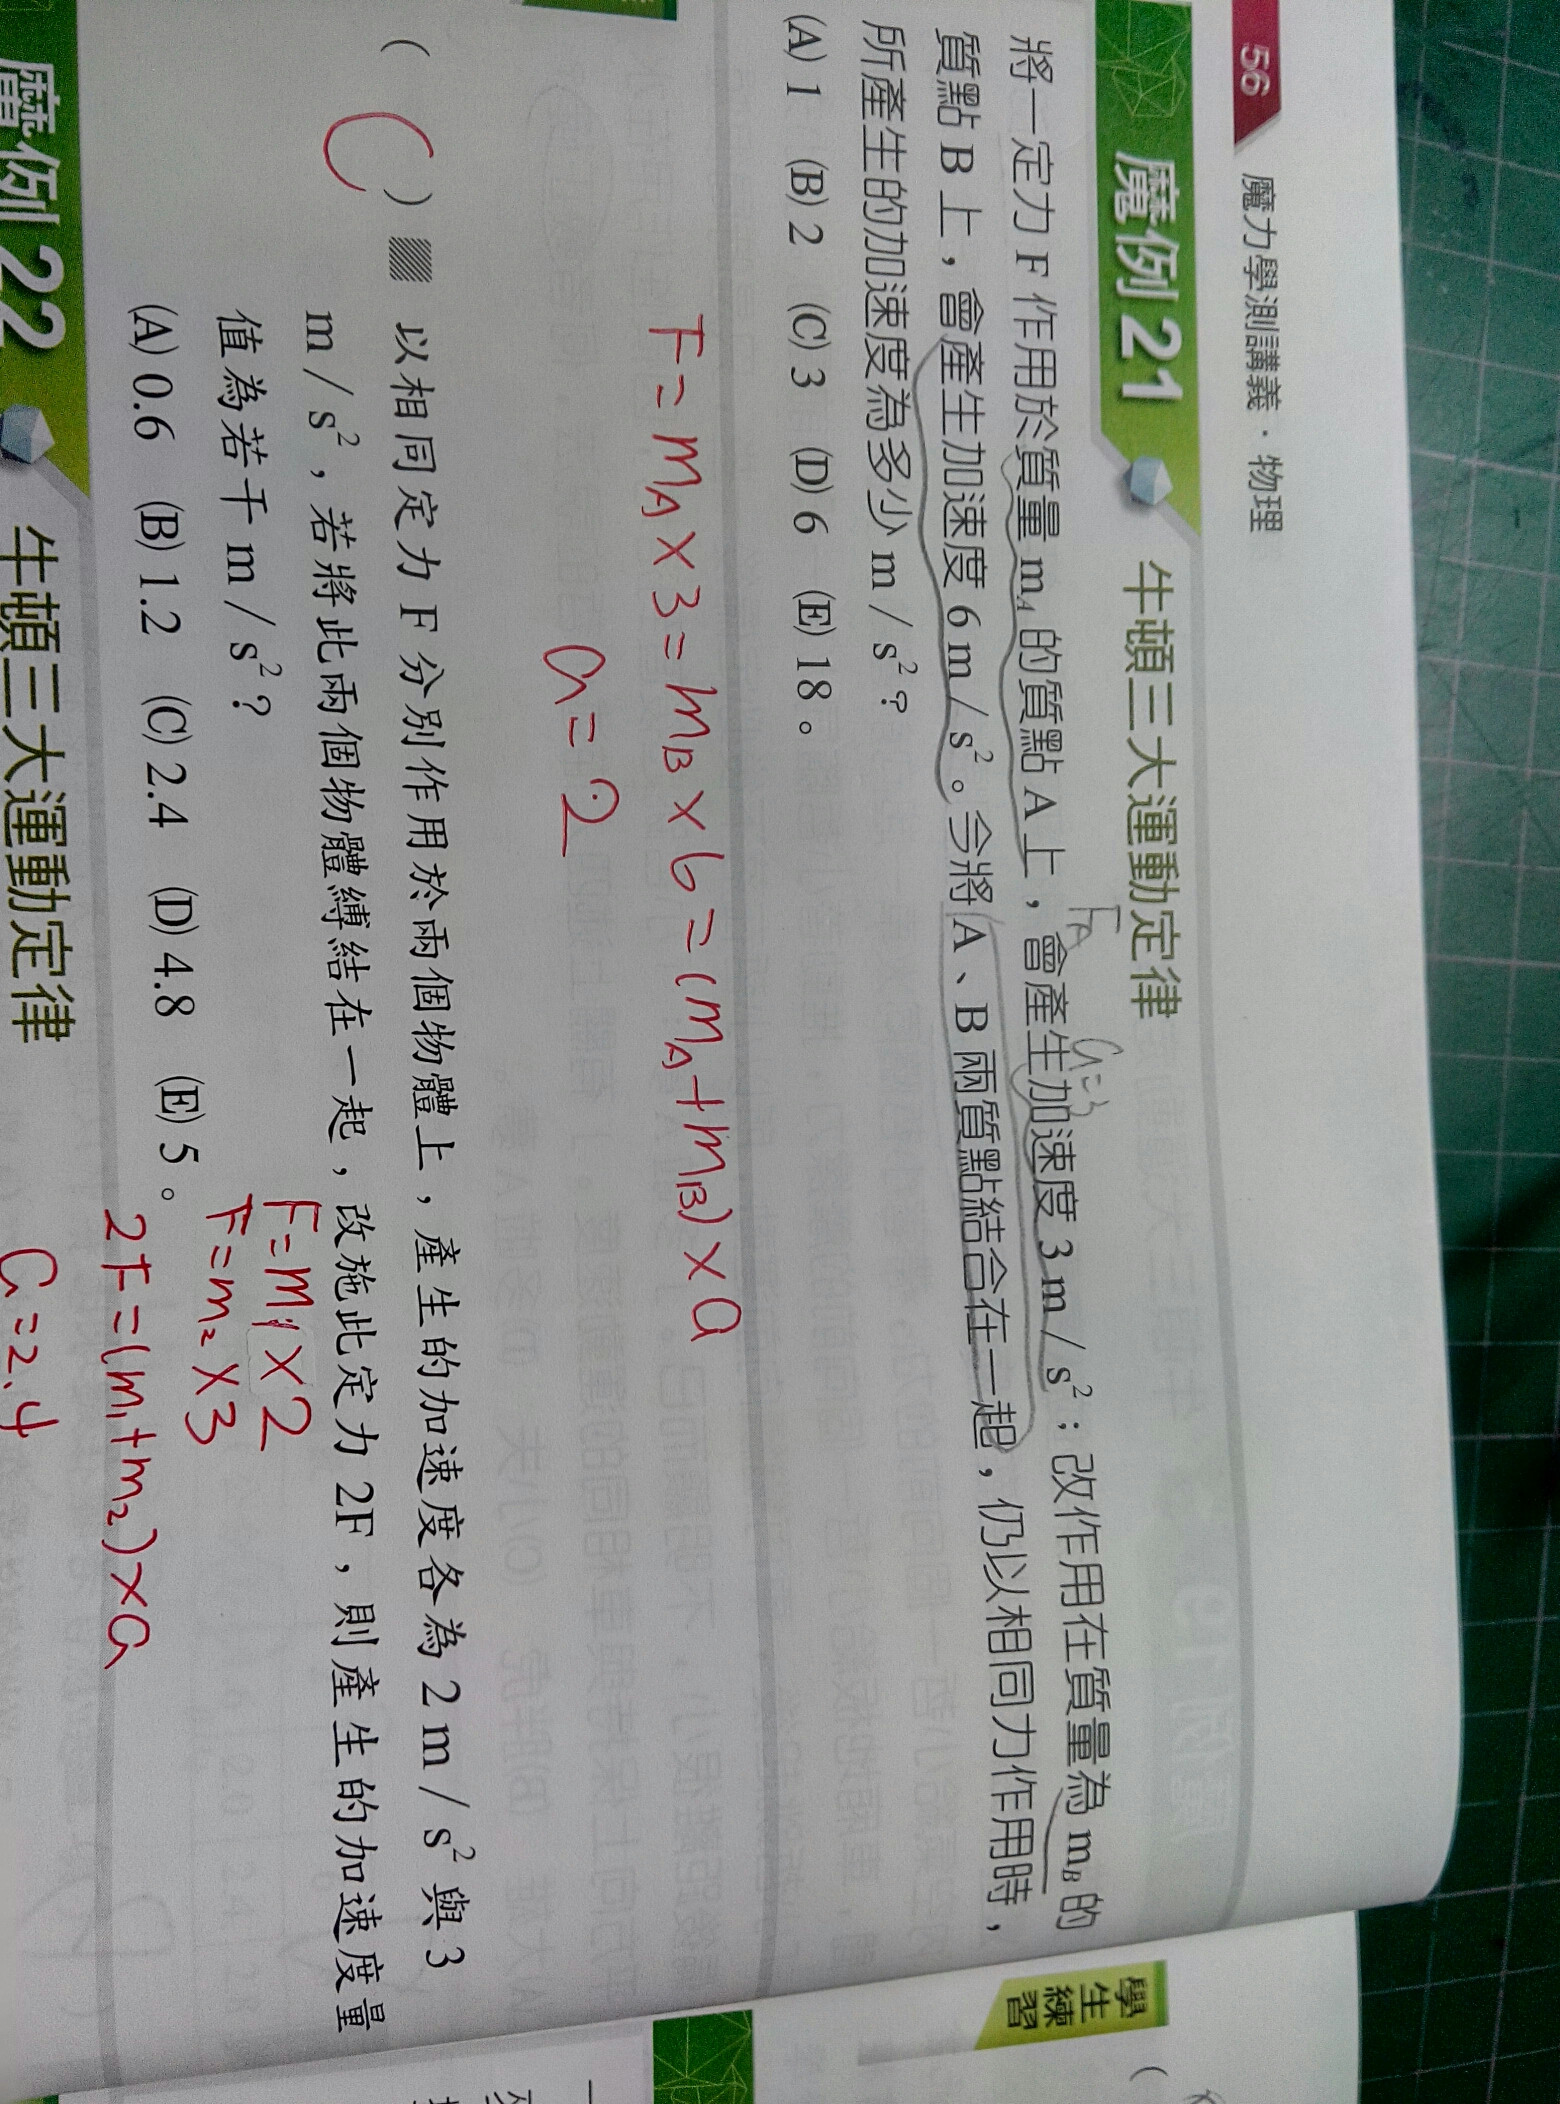 56 魔力學測講義・物理
魔例 21 牛頓三大運動定律
將一定力 F 作用於質量 mA 的質點 A 上，會產生加速度 3 m / s²；改作用在質量為 mB 的
FA a=3
質點 B 上，會產生加速度 6 m / s²。今將 A、B 兩質點結合在一起，仍以相同力作用時，
所產生的加速度為多少 m / s²？
(A) 1 (B) 2 (C) 3 (D) 6 (E) 18。
F = mA × 3 = mB × 6 = (mA + mB) × a
a = 2
( C ) 以相同定力 F 分別作用於兩個物體上，產生的加速度各為 2 m / s² 與 3
m / s²，若將此兩個物體縛結在一起，改施此定力 2F，則產生的加速度量
值為若干 m / s²？
F = m1 × 2
F = m2 × 3
(A) 0.6 (B) 1.2 (C) 2.4 (D) 4.8 (E) 5。
2F = (m1 + m2) × a
a = 2.4
魔例 22 牛頓三大運動定律
學生練習